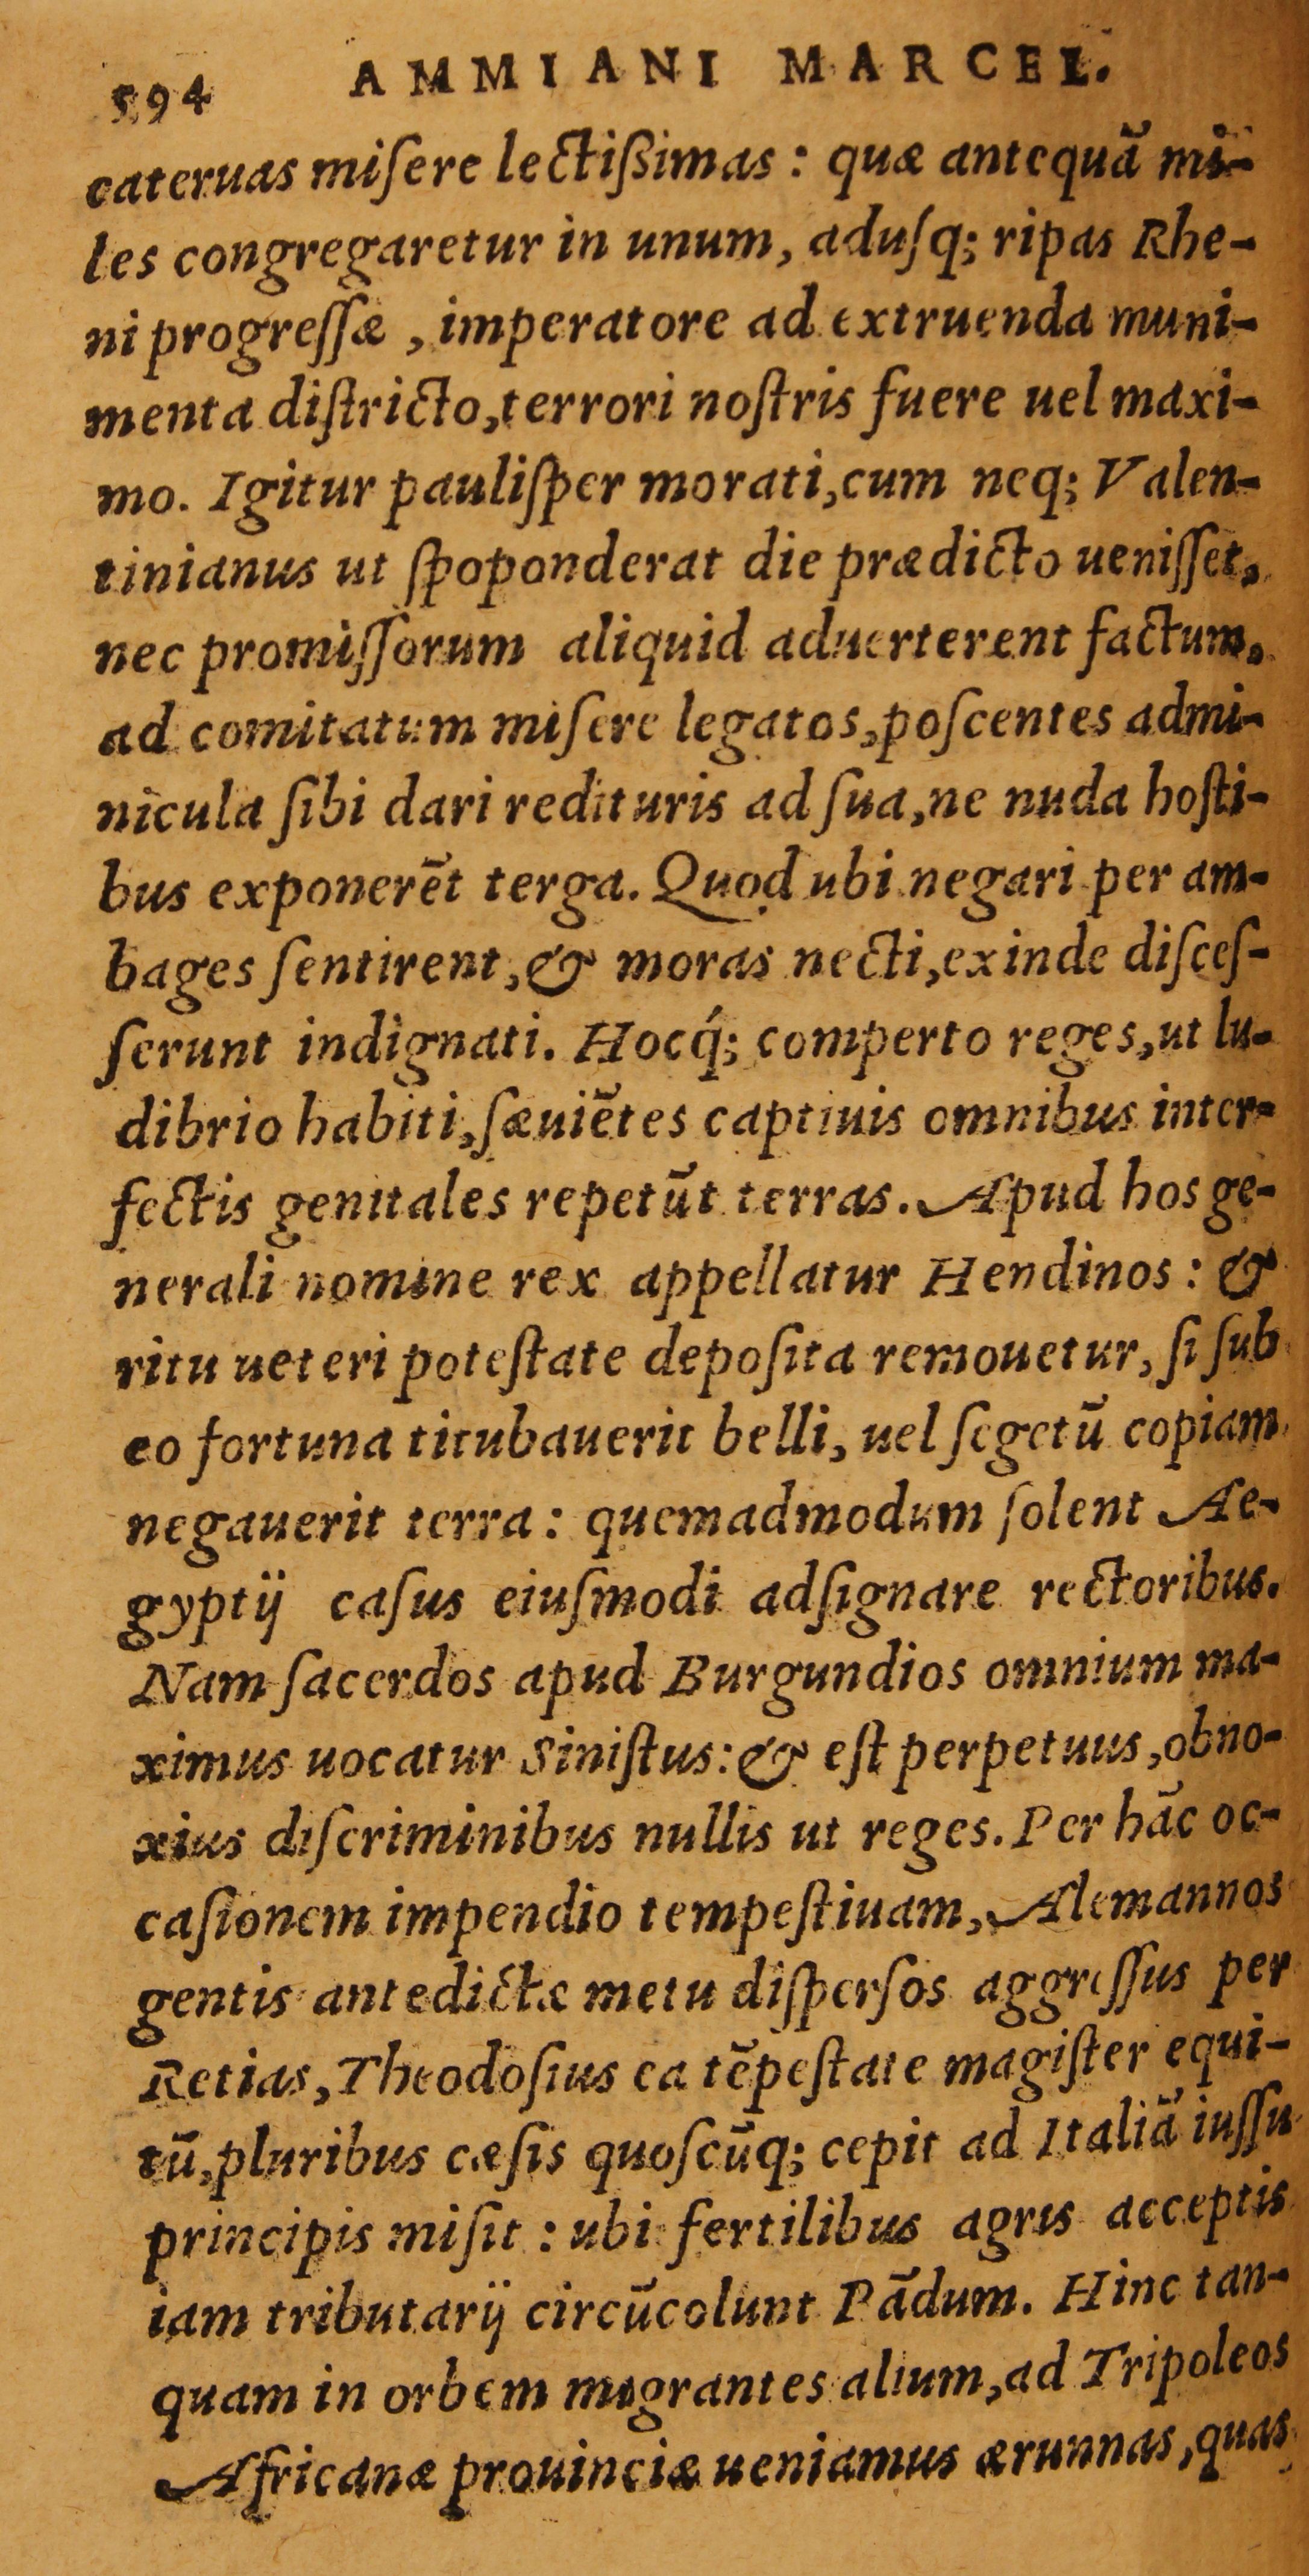 594 AMMIANI MARCEL.
cateruas misere lectißimas : quæ antequã mi-
les congregaretur in unum, aduſq; ripas Rhe-
ni progreſſæ , imperatore ad extruenda muni-
menta diſtricto, terrori noſtris fuere uel maxi-
mo. Igitur pauliſper morati, cum neq; Valen-
tinianus ut ſpoponderat die prædicto ueniſſet,
nec promiſſorum aliquid aduerterent factum,
ad comitatum miſere legatos, poſcentes admi-
nicula ſibi dari redituris ad ſua, ne nuda hoſti-
bus exponerẽt terga. Quod ubi negari per am-
bages ſentirent, & moras necti, exinde diſceſ-
ſerunt indignati. Hocq́; comperto reges, ut lu-
dibrio habiti, ſæuiẽtes captiuis omnibus inter-
fectis genitales repetũt terras. Apud hos ge-
nerali nomine rex appellatur Hendinos : &
ritu ueteri poteſtate depoſita remouetur, ſi ſub
eo fortuna titubauerit belli, uel ſegetũ copiam
negauerit terra : quemadmodum ſolent Ae-
gyptij caſus eiuſmodi adſignare rectoribus.
Nam ſacerdos apud Burgundios omnium ma-
ximus uocatur Siniſtus: & eſt perpetuus, obno-
xius diſcriminibus nullis ut reges. Per hãc oc-
caſionem impendio tempeſtiuam, Alemannos
gentis antedictæ metu diſperſos aggreſſus per
Retias, Theodoſius ea tẽpeſtate magiſter equi-
tũ, pluribus cæſis quoſcũq; cepit ad Italiã iuſſu
principis miſit : ubi fertilibus agris acceptis
iam tributarij circũcolunt Pãdum. Hinc tan-
quam in orbem migrantes alium, ad Tripoleos
Africanæ prouinciæ ueniamus ærunnas, quas